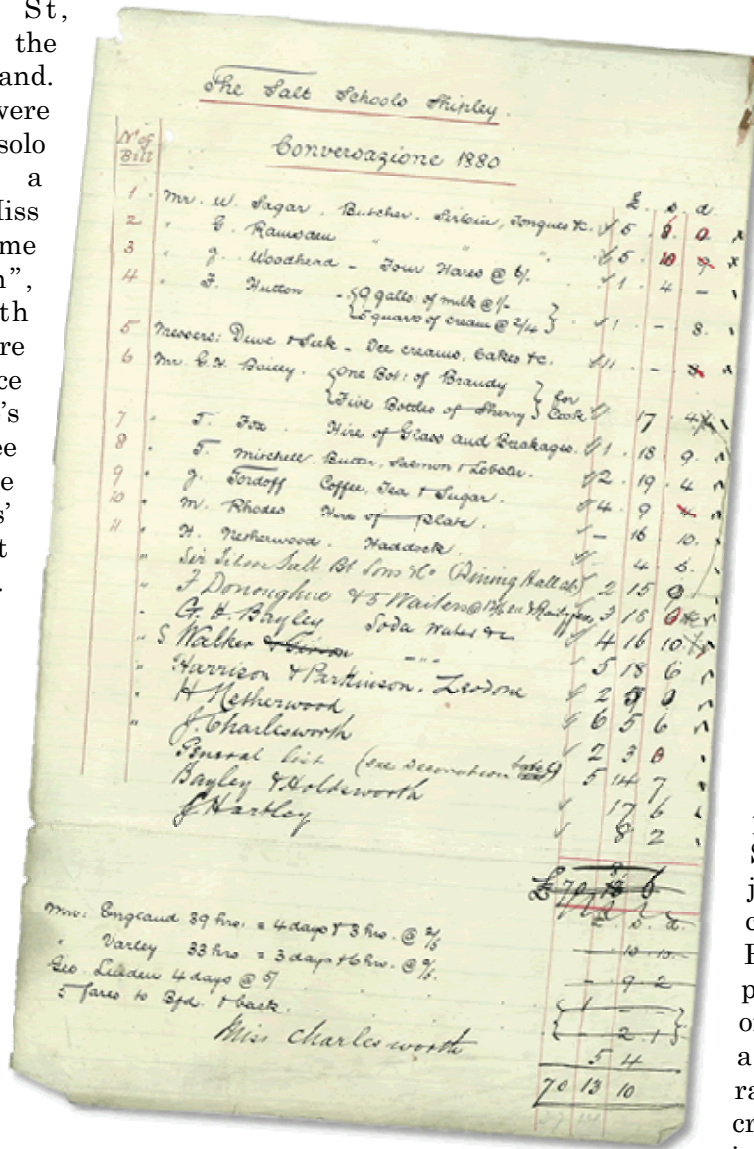 St,
the
and.
were
solo
a
iss
me
n",
th
re
ce
's
ee
e
s'
t
.
The Salt Schools Shipley.
Conversazione 1880
No of
Bill
£. s. d.
1 Mr. W. Sagar. Butcher. Sirloin, Tongues &c. 5 8
2 " G. Ramsden " " " 5 10
3 " J. Woodhead - Four Hares @ 6/- 1 4 -
4 " F. Hutton - 9 galls. of milk @ 1/-
5 quarts of cream @ 2/4 1 - 8.
5 Messers: Dewe & - Ice creams, Cakes &c. 11 -
6 Mr. G. H. Bailey. One Bot: of Brandy
Five Bottles of Sherry for Cook 17 4
7 " T. Fox. Hire of Glass and Breakages. 1 18 9.
8 " T. Mitchell Butter, Salmon & Lobster. 2. 19. 4
9 " J. Tordoff Coffee, Tea & Sugar. 4. 9
10 " M. Rhodes Hire of Plate. - 16 10.
11 " H. Netherwood. Haddock. 4 6.
" Sir Titus Salt Bt Sons & Co (Dining Hall 2 15
" F Donoghue & 5 Waiters @ 3 15
" G. H. Bayley Soda Water &c 4 16 10
" S Walker 5 18 6
" Harrison & Parkinson. Zoedone 2
" H Netherwood 6 5 6
" J. Charlesworth 2 3
General list (see Decoration 5 14 7
Bayley & Holdsworth 17 6
J Hartley 8 2
£ 70 13
£. s. d.
Mrs: England 39 hrs. = 4 days & 3 hrs. @ 2/5 - 10 10.
" Varley 33 hrs = 3 days & 6 hrs. @ - 9 2
Geo. 4 days @ 5/ 1 -
5 fares to Bfd. & back. - 2 1
Miss Charlesworth 5 4
70 13 10